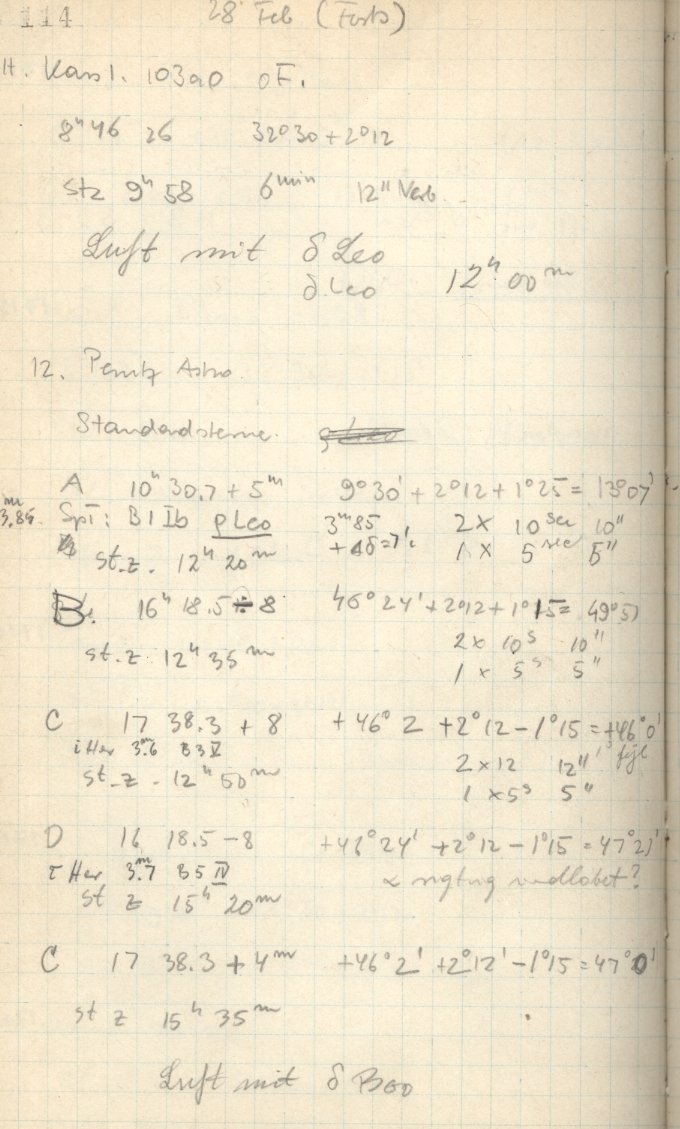 114 28 Feb (Forts)
11. Kass 1. 103a0 oF.
8ʰ46 26 32°30 + 2°12
Stz 9ʰ 58 6ᵐⁱⁿ 12" Verb.
Luft mit δ Leo
δ Leo 12ʰ 00ᵐ
12. Astro.
Standardsterne.
A 10ʰ 30.7 + 5ᵐ 9°30' + 2°12 + 1°25 = 13°07'
ᵐ3.85. Spt: B1 Ib ρLeo 3ᵐ85 2 x 10ˢᵉᶜ 10"
1 x 5ˢᵉᶜ 5"
st.z. 12ʰ 20ᵐ
B. 16ʰ 18.5 ÷ 8 46°24' + 2°12 + 1°15 = 49°51
2 x 10ˢ 10"
st.z. 12ʰ 35ᵐ 1 x 5ˢ 5"
C 17 38.3 + 8 +46°2 +2°12 - 1°15 = +46°0'
i Her 3ᵐ6 B3 V 2 x 12 12"
st.z - 12ʰ 50ᵐ 1 x 5ˢ 5"
D 16 18.5 - 8 +46°24' +2°12 - 1°15 = 47°21'
τ Her 3ᵐ.7 B5 IV
st z 15ʰ 20ᵐ
C 17 38.3 + 4ᵐ +46°2' +2°12' - 1°15 = 47°0'
st z 15ʰ 35ᵐ
Luft mit δ Boo